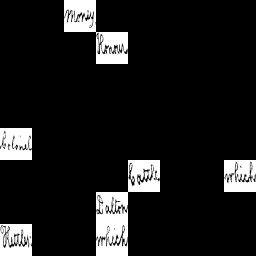 Money
Honour
Colonel
Cattle which
Dalton
Kettles which